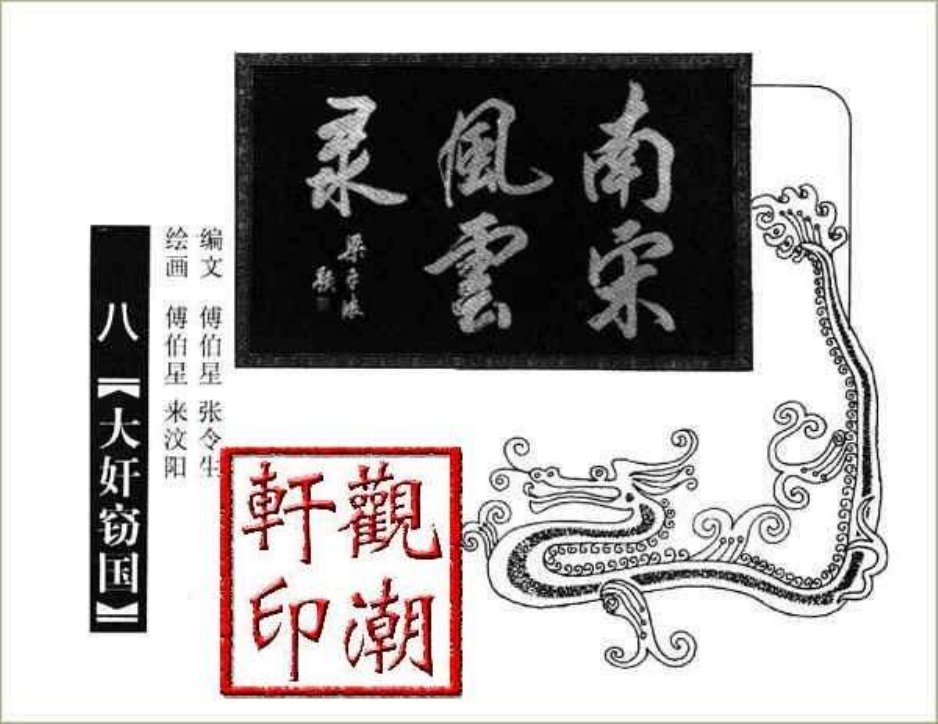 南宋
風雲
录
梁平波
题
编文 傅伯星 张令生
绘画 傅伯星 来汶阳
八 《大奸窃国》
觀潮
軒印